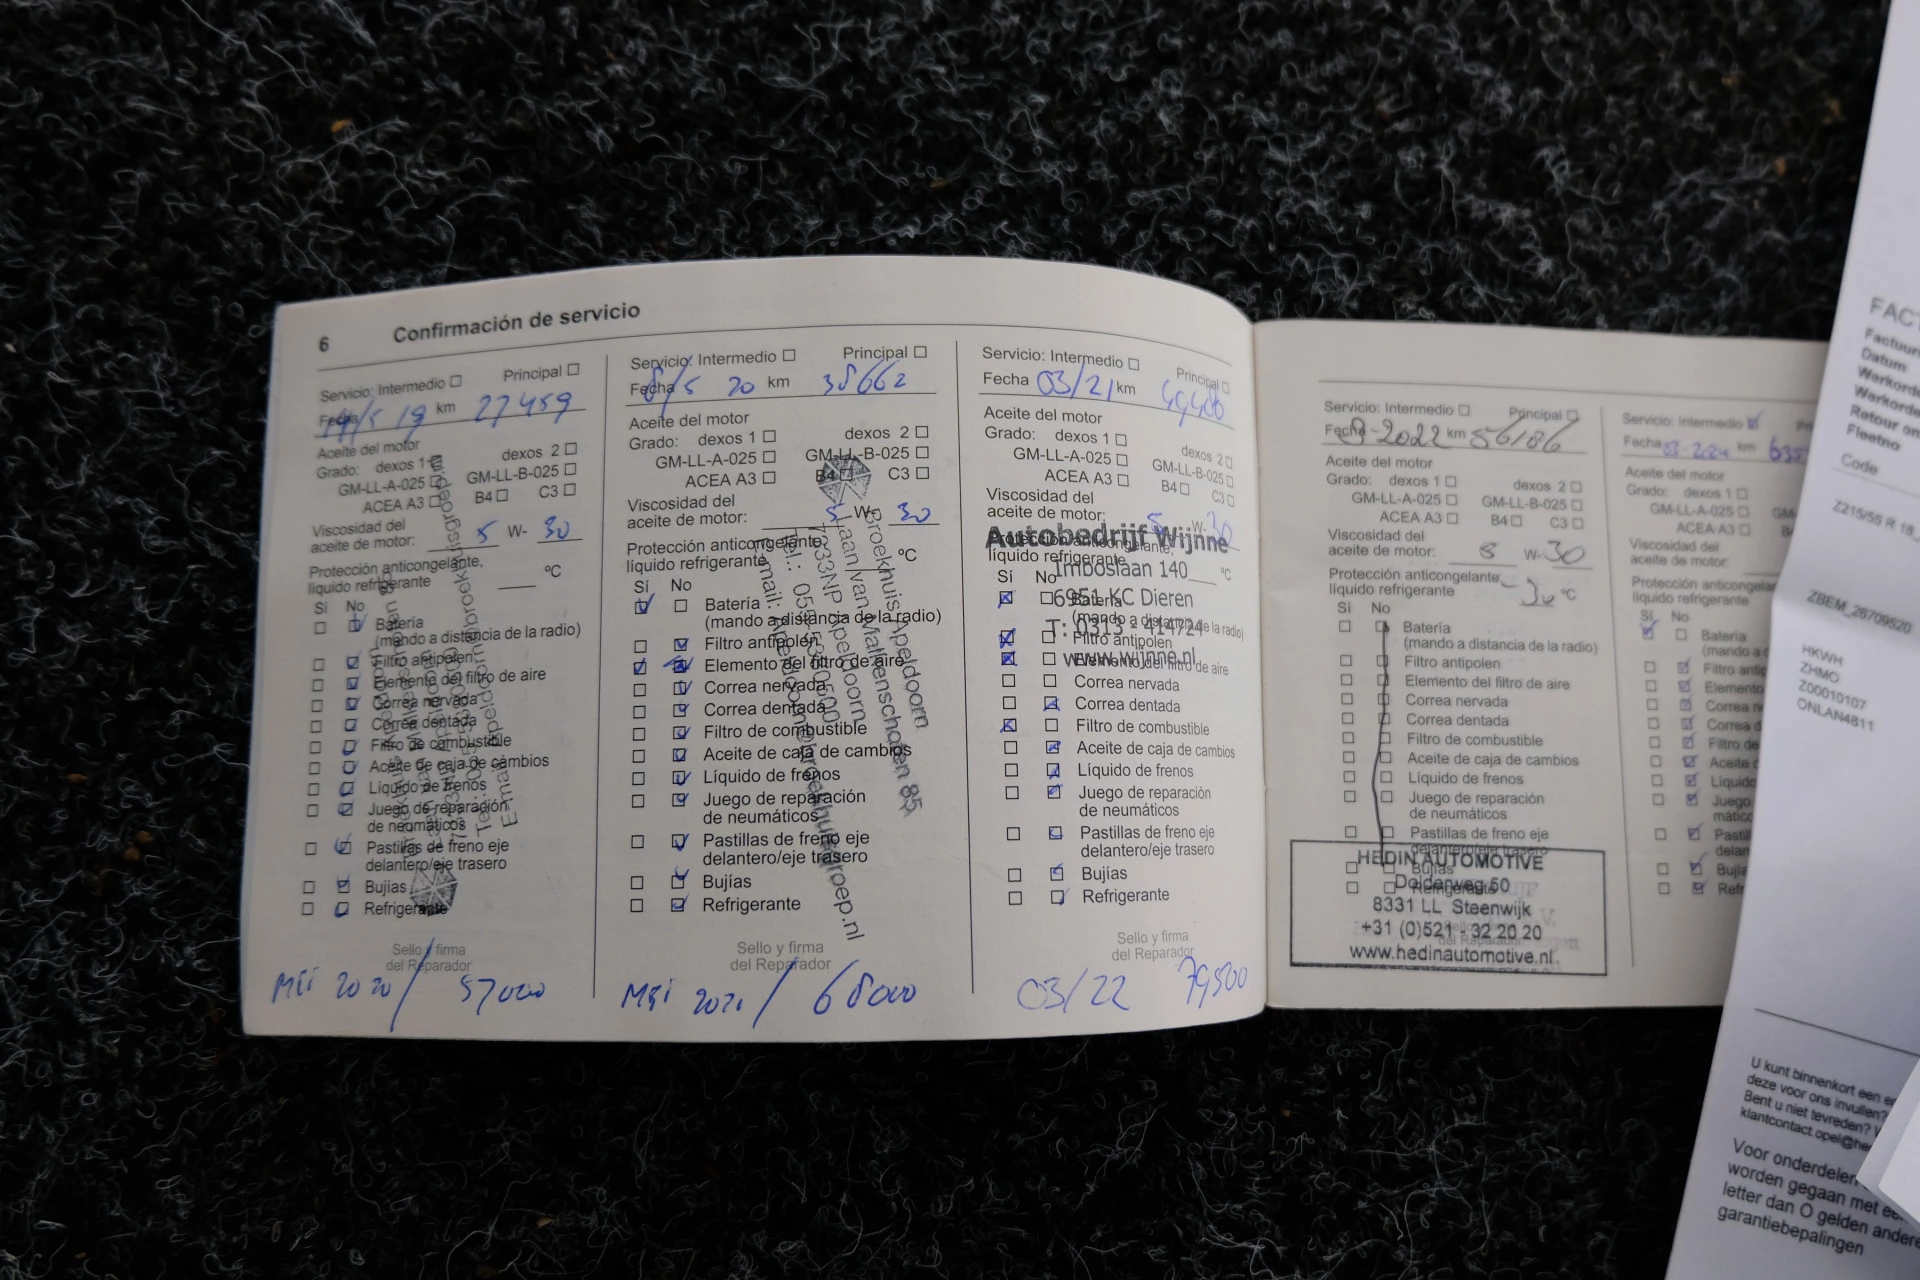 6 Confirmación de servicio
Servicio: Intermedio Principal
Fecha 14/5 19 km 27459
Aceite del motor
Grado: dexos 1 dexos 2
GM-LL-A-025 GM-LL-B-025
ACEA A3 B4 C3
Viscosidad del
aceite de motor: 5 W- 30
Protección anticongelante,
líquido refrigerante °C
Sí No
Batería
(mando a distancia de la radio)
Filtro antipolen
Elemento del filtro de aire
Correa nervada
Correa dentada
Filtro de combustible
Aceite de caja de cambios
Líquido de frenos
Juego de reparación
de neumáticos
Pastillas de freno eje
delantero/eje trasero
Bujías
Refrigerante
Sello y firma
del Reparador
Mei 2020 / 57000
Servicio: Intermedio Principal
Fecha 8/5 20 km 38662
Aceite del motor
Grado: dexos 1 dexos 2
GM-LL-A-025 GM-LL-B-025
ACEA A3 B4 C3
Viscosidad del
aceite de motor: 5 W- 30
Protección anticongelante,
líquido refrigerante °C
Sí No
Batería
(mando a distancia de la radio)
Filtro antipolen
Elemento del filtro de aire
Correa nervada
Correa dentada
Filtro de combustible
Aceite de caja de cambios
Líquido de frenos
Juego de reparación
de neumáticos
Pastillas de freno eje
delantero/eje trasero
Bujías
Refrigerante
Broekhuis Apeldoorn
Laan van Malkenschoten 85
7333NP Apeldoorn
Sello y firma
del Reparador
Mei 2021 / 68000
Servicio: Intermedio Principal
Fecha 03/21 km
Aceite del motor
Grado: dexos 1 dexos 2
GM-LL-A-025 GM-LL-B-025
ACEA A3 B4 C3
Viscosidad del
aceite de motor: 5 W- 30
Autobedrijf Wijnne
Protección anticongelante,
líquido refrigerante °C
Imboslaan 140
Sí No
6951 KC Dieren
Batería
(mando a distancia de la radio)
T: 0313 - 414724
Filtro antipolen
www.wijnne.nl
Elemento del filtro de aire
Correa nervada
Correa dentada
Filtro de combustible
Aceite de caja de cambios
Líquido de frenos
Juego de reparación
de neumáticos
Pastillas de freno eje
delantero/eje trasero
Bujías
Refrigerante
Sello y firma
del Reparador
03/22 79500
Servicio: Intermedio Principal
Fecha 9-2022 km 56186
Aceite del motor
Grado: dexos 1 dexos 2
GM-LL-A-025 GM-LL-B-025
ACEA A3 B4 C3
Viscosidad del
aceite de motor: W-30
Protección anticongelante,
líquido refrigerante -30 °C
Sí No
Batería
(mando a distancia de la radio)
Filtro antipolen
Elemento del filtro de aire
Correa nervada
Correa dentada
Filtro de combustible
Aceite de caja de cambios
Líquido de frenos
Juego de reparación
de neumáticos
Pastillas de freno eje
delantero/eje trasero
Bujías
Refrigerante
HEDIN AUTOMOTIVE
Dolderweg 50
8331 LL Steenwijk
+31 (0)521 - 32 20 20
www.hedinautomotive.nl
Servicio: Intermedio
Fecha 03-2024 km
Aceite del motor
Grado: dexos 1
GM-LL-A-025
ACEA A3
Viscosidad del
aceite de motor:
Protección
líquido refrigerante
Sí No
Batería
(mando a
Filtro
Elemento
Correa
Correa
Filtro de
Aceite
Líquido
Juego
Datum
Fleetno
Code
Z215/55 R 18
ZBEM_28709520
HKWH
ZHMO
Z00010107
ONLAN4811
U kunt binnenkort een
deze voor ons invullen?
Bent u niet tevreden?
Voor onderdelen
worden gegaan met
letter dan O gelden andere
garantiebepalingen